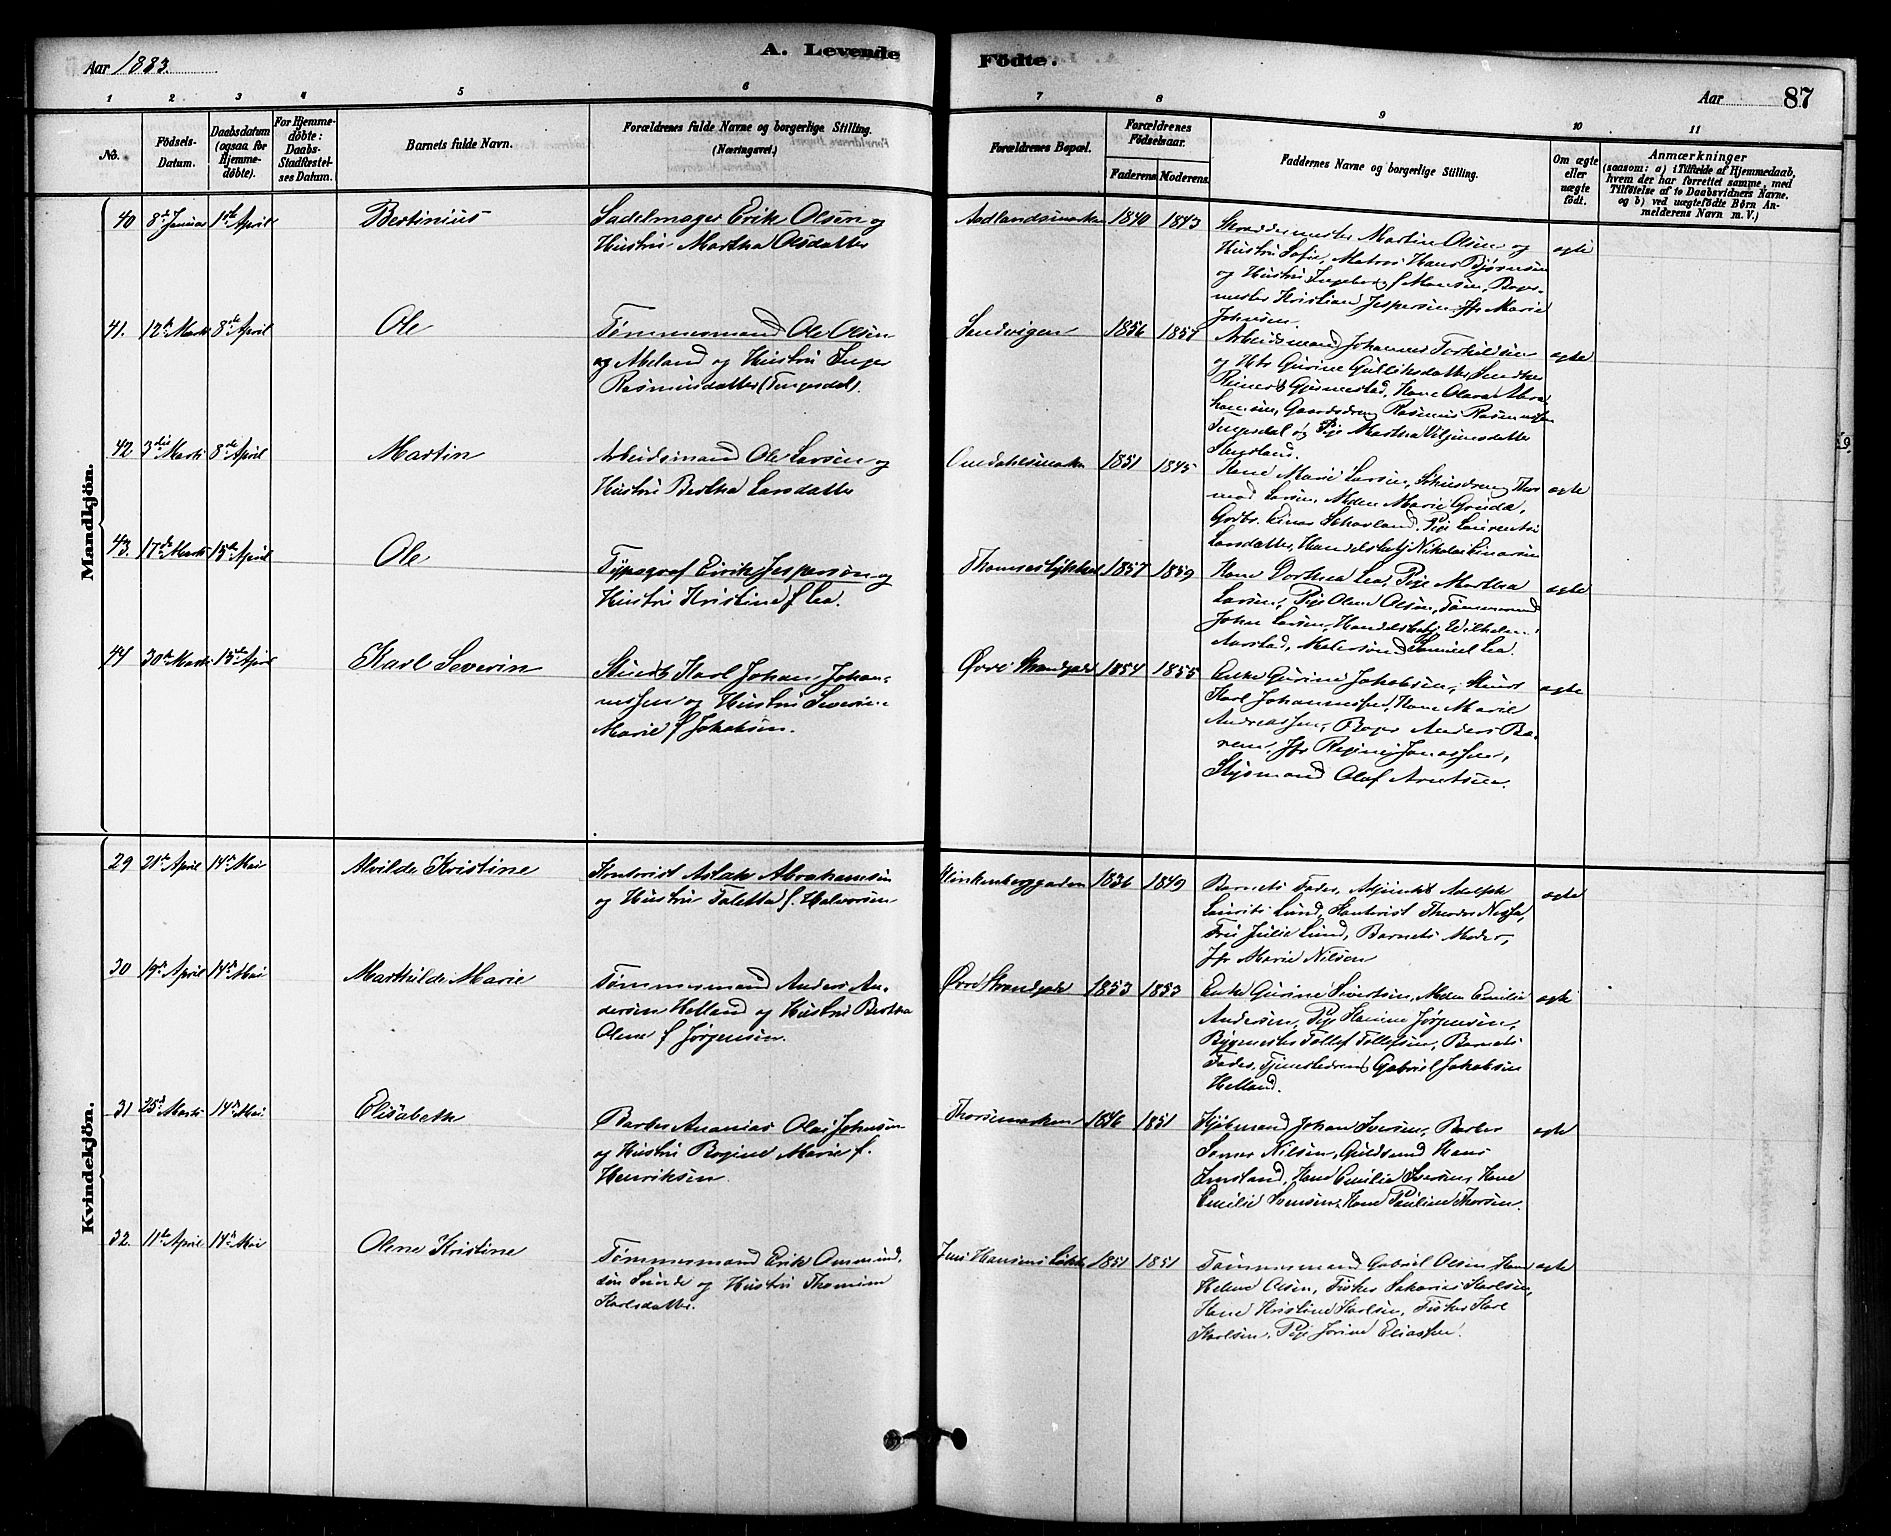 Aar 1883.
A. Levende
Födte.
Aar
87
1 2 3 4 5 6 7 8 9 10 11
No.
Födsels-
Datum.
Daabsdatum
(ogsaa for
Hjemme-
döbte).
For Hjemme-
döbte:
Daabs-
Stadfæstel-
ses Datum.
Barnets fulde Navn.
Forældrenes fulde Navne og borgerlige Stilling.
(Næringsvei.)
Forældrenes Bopæl.
Forældrenes
Födselsaar.
Faderens
Moderens.
Faddernes Navne og borgerlige Stilling.
Om ægte
eller
uægte
født.
Anmærkninger
(saasom: a) i Tilfælde af Hjemmedaab,
hvem der har forrettet samme, med
Tilföielse af to Daabsvidners Navne.
og b) ved uægtefödte Börn An-
melderens Navn m. V.)
Mandkjön.
40 8de Januar 1ste April
Bertinius
Sadelmager Erik Olsen og
Hustru Martha Olsdatter
Aadlandsmarken 1840 1843
Skræddermester Martin Olsen og
Hustru Sofie, Matros Hans Bjørnsen
og Hustru Ingeborg f Monsen, Bager-
mester Kristian Jespersen, Jfr Marie
Johnsen.
ægte
41. 12te Marts 8de April
Ole
Tømmermand Ole Olsen
og Aaeland og Hustru Inger
Rasmusdatter (Tengesdal).
Sandvigen 1856 1857
Arbeidsmand Johannes Torkildsen
og Hst Gurine Gulliksdatter,
Gjermestad, Kone Olava Abra-
hamsen, Gaardsdreng Rasmus Rasmussen
Tengesdal og Pige Martha
ægte
42 3die Marts 8de April
Martin
Arbeidsmand Ole Larsen og
Hustru Bertha Larsdatter
Omdahlsmarken 1851 1845
Kone Marie Larsen, Thor
mod Larsen, Madm Marie Gouda,
Einar Pige Laurentse
Larsdatter, Handelsbetj Nikolai Einarsen
ægte
43. 17de Marts 15de April
Ole
Typograf Eirik Jespersen og
Hustru Kristine f Lea.
Thomses Løkke 1857 1859
Kone Dorthea Lea, Pige Martha
Larsen, Pige Olene Olsen, Tømmermand
Johan Larsen, Handelsbetj Wilhelm
Aarstad, Malersvend Samuel Lea.
ægte
44 30te Marts 15de April
Karl Severin
Stuert Karl Johan Johan-
nessen og Hustru Severine
Marie f Jakobsen.
Øvre Strandgade 1854 1855
Enke Gurine Jakobsen, Stuert
Karl Johannessen, Kone Marie
Andreassen, Bager Anders Ba-
rem, Jfr Regine Jonassen,
Styrmand Olaf Arntsen.
ægte
Kvindekjön.
29 21de April 14de Mai
Alvilde Kristine
Kontorist Aslak Abrahamsen
og Hustru Taletta f. Halvorsen
Klinkenberggaden 1836 1849
Barnets Fader, Adjunkt Adolph
Laurits Lund, Kontorist Theodor
Fru Julie Lund, Barnets Moder,
Jfr Marie Nilsen
ægte
30 19de April 14de Mai
Mathilde Marie
Tømmermand Anders An-
dersen Helland og Hustru Bertha
Olene f Jørgensen.
Øvre Strandgade 1853 1853
Enke Gurine Sivertsen, Madm Emilie
Andersen, Pige Hanine Jørgensen,
Bygmester Tollef Tollefsen, Barnets
Fader, Tjenestedreng Gabriel Jakobsen
Helland.
ægte
31 25de Marts 14de Mai
Elisabeth
Barber Ananias Olai Johnsen
og Hustru Regine Marie f.
Henriksen.
Thorsmarken 1846 1851
Kjøbmand Johan Iversen, Barber
Nilsen, Guldsmed Hans
Imsland, Kone Emilie Iversen, Kone
Emilie Svensen, Kone Pauline Thorsen.
ægte
32. 11te April 14de Mai
Olene Kristine
Tømmermand Erik Ommund-
sen Sunde og Hustru Thomine
Karlsdatter.
Jens Hansens Løkke 1851 1851
Tømmermand Gabriel Olsen, Kone
Helene Olsen, Fisker Sakarias Karlsen,
Kone Kristine Karlsen, Fisker Karl
Karlsen, Pige Jorine Eliassen.
ægte